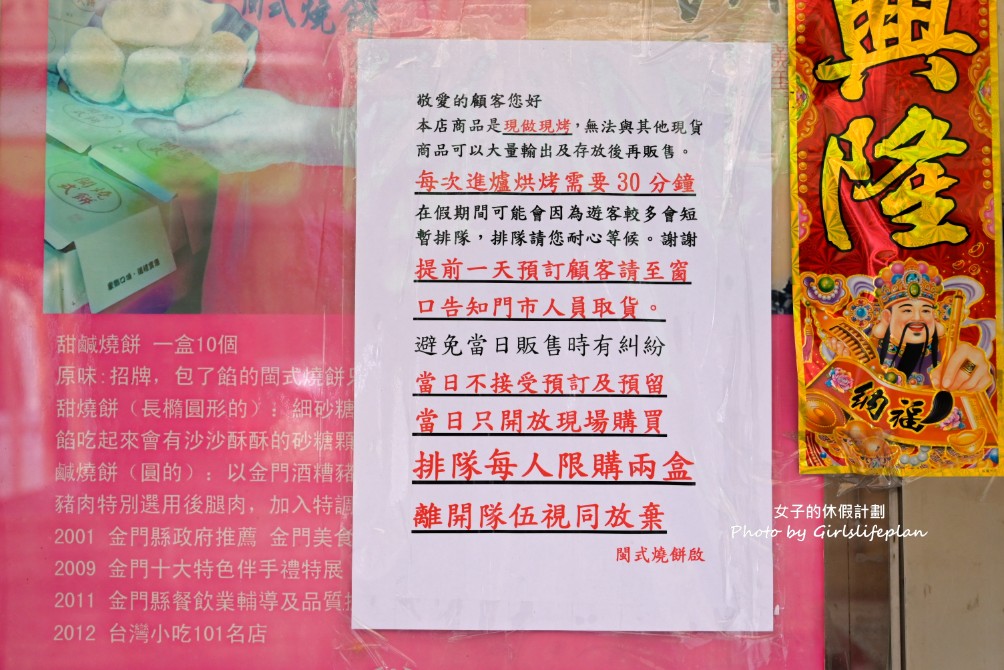 閩式燒餅
敬愛的顧客您好
本店商品是現做現烤,無法與其他現貨
商品可以大量輸出及存放後再販售。
每次進爐烘烤需要30分鐘
在假期間可能會因為遊客較多會短
暫排隊,排隊請您耐心等候。謝謝
提前一天預訂顧客請至窗
口告知門市人員取貨。
避免當日販售時有糾紛
當日不接受預訂及預留
當日只開放現場購買
排隊每人限購兩盒
離開隊伍視同放棄
閩式燒餅啟
甜鹹燒餅 一盒10個
原味:招牌,包了餡的閩式燒餅
甜燒餅(長橢圓形的):細砂糖
餡吃起來會有沙沙酥酥的砂糖顆
鹹燒餅(圓的):以金門酒糟豬
豬肉特別選用後腿肉,加入特調
2001 金門縣政府推薦 金門美食
2009 金門十大特色伴手禮特展
2011 金門縣餐飲業輔導及品質
2012 台灣小吃101名店
興隆
納福
女子的休假計劃
Photo by Girlslifeplan